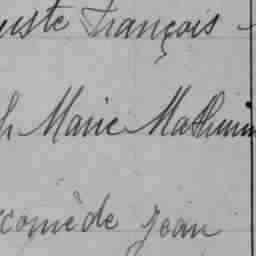 uste François
h Marie Mathurin
comède Jean